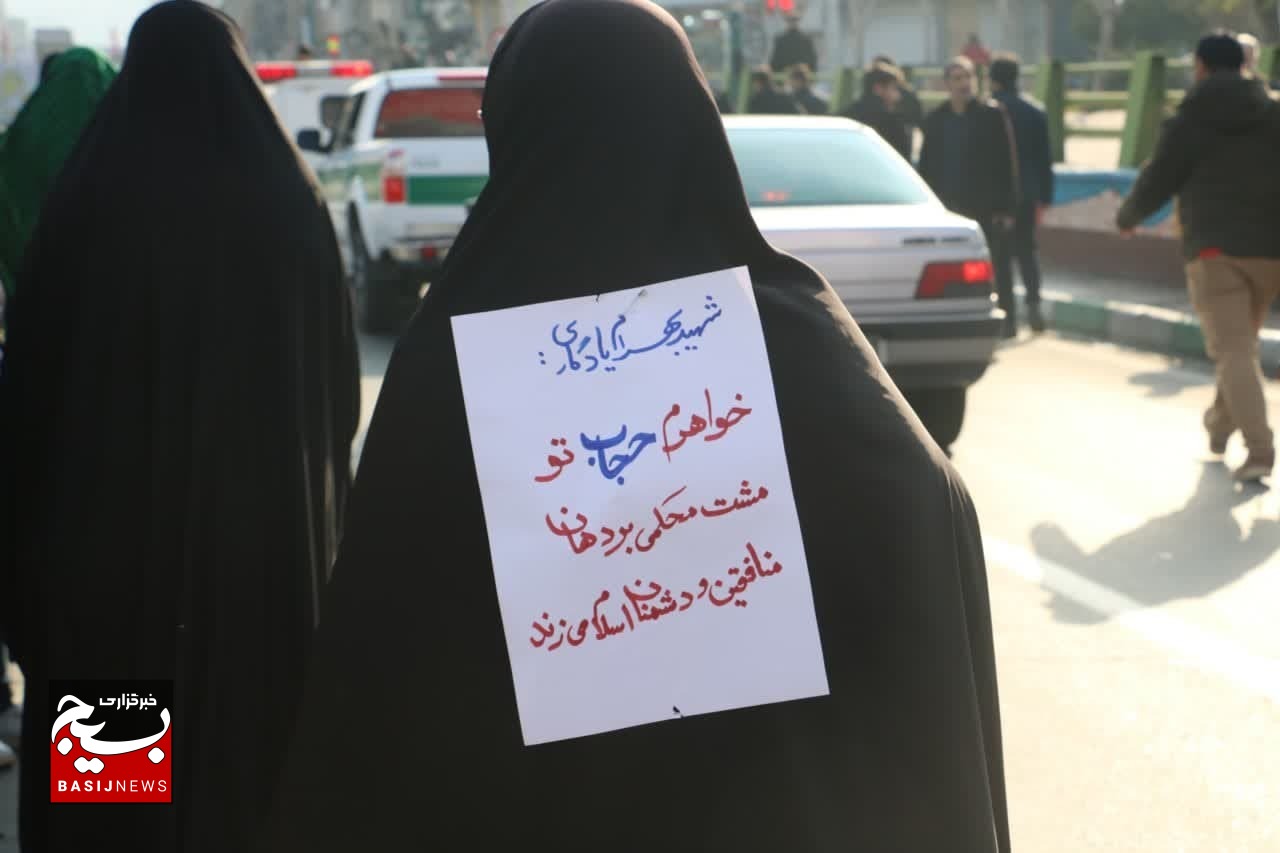 شهید بهرام یادگاری :
خواهرم حجاب تو
مشت محکمی بر دهان
منافقین و دشمنان اسلام می زند
خبرگزاری
بسیج
BASIJNEWS